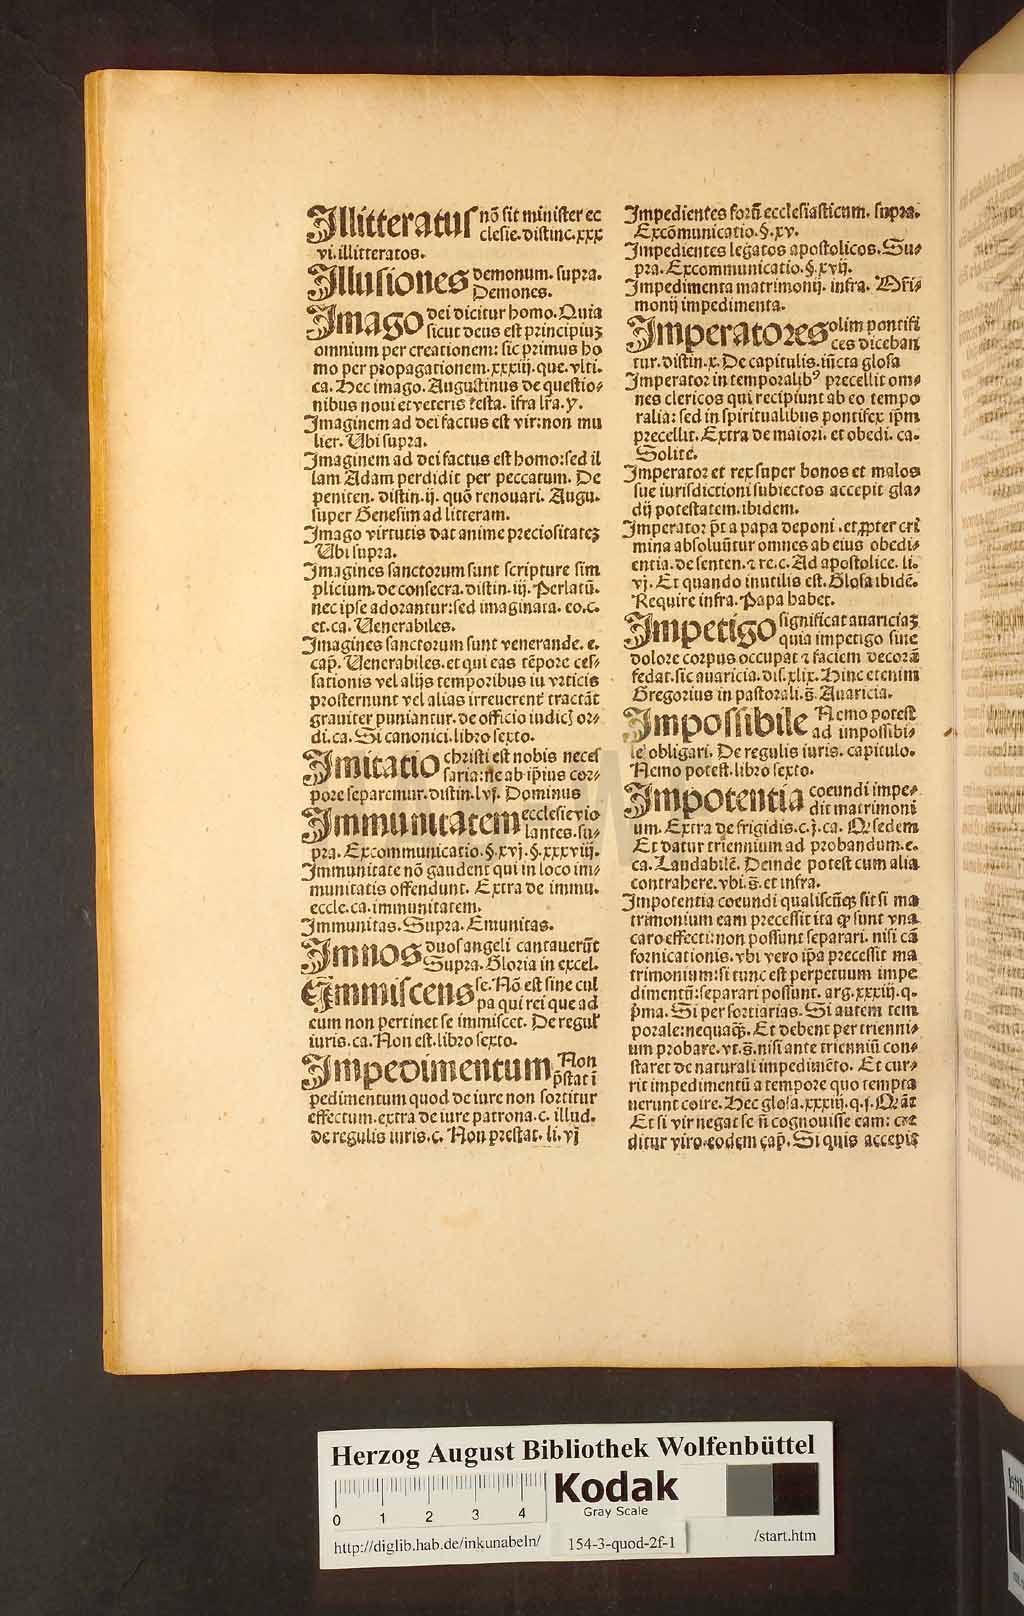 Illitteratus nō sit minister ec
clesie. distinc. xxx
vi. illitteratos.
Illusiones demonum. supra.
Demones.
Imago dei dicitur homo. Quia
sicut deus est principiuʒ
omnium per creationem: sic primus ho
mo per propagationem. xxxiij. que. vlti.
ca. Hec imago. Augustinus de questio⸗
nibus noui et veteris testa. īfra lr̄a. y.
Imaginem ad dei factus est vir: non mu
lier. Ubi supra.
Imaginem ad dei factus est homo: sed il
lam Adam perdidit per peccatum. De
peniten. distin. ij. quō renouari. Augu.
super Genesim ad litteram.
Imago virtutis dat anime preciositateʒ
Ubi supra.
Imagines sanctorum sunt scripture sīm
plicium. de consecra. distin. iij. Perlatū.
nec ipse adorantur: sed imaginata. eo. c.
et. ca. Uenerabiles.
Imagines sanctorum sunt venerande. e.
cap̄. Uenerabiles. et qui eas tēpore ces⸗
sationis vel alijs temporibus in vrticis
prosternunt vel alias irreuerent̄ tractāt
grauiter puniantur. de officio iudicꝭ or⸗
di. ca. Si canonici. libro sexto.
Imitatio christi est nobis neces
saria: ne ab ip̄ius cor⸗
pore separemur. distin. lvj. Dominus
Immunitatem ecclesie vio
lantes. su⸗
pra. Excommunicatio. §. xvj. §. xxxviij.
Immunitate nō gaudent qui in loco im⸗
munitatis offendunt. Extra de immu.
eccle. ca. immunitatem.
Immunitas. Supra. Emunitas.
Imnos duos angeli cantauerūt
Supra. Gloria in excel.
Immiscens se. Nō est sine cul
pa qui rei que ad
eum non pertinet se immiscet. De regul̄
iuris. ca. Non est. libro sexto.
Impedimentum Non
p̄stat ī
pedimentum quod de iure non sortitur
effectum. extra de iure patrona. c. illud.
de regulis iuris. c. Non prestat. li. vj
Impedientes forū ecclesiasticum. supra.
Excōmunicatio. §. xv.
Impedientes legatos apostolicos. Su⸗
pra. Excommunicatio. §. xvij.
Impedimenta matrimonij. infra. Mr̄i⸗
monij impedimenta.
Imperatores olim pontifi
ces diceban
tur. distin. x. De capitulis. iūcta glosa
Imperator in temporalibꝰ precellit om⸗
nes clericos qui recipiunt ab eo tempo
ralia: sed in spiritualibus pontifex ip̄m
precellit. Extra de maiori. et obedi. ca.
Solite.
Imperator et rex super bonos et malos
sue iurisdictioni subiectos accepit gla⸗
dij potestatem. ibidem.
Imperator p̄t a papa deponi. et ꝓpter cri
mina absoluūtur omnes ab eius obedi⸗
entia. de senten. ⁊ re. c. Ad apostolice. li.
vj. Et quando inutilis est. Glosa ibidē.
Require infra. Papa habet.
Impetigo significat auariciaʒ
quia impetigo sine
dolore corpus occupat ⁊ faciem decorā
fedat. sic auaricia. dis. xlix. Hinc etenim
Gregorius in pastorali. s̄. Auaricia.
Impossibile Nemo potest
ad impossibi⸗
le obligari. De regulis iuris. capitulo.
Nemo potest. libro sexto.
Impotentia coeundi impe⸗
dit matrimoni
um. Extra de frigidis. c. j. ca. Q sedem
Et datur triennium ad probandum. e.
ca. Laudabilē. Deinde potest cum alia
contrahere. vbi. s̄. et infra.
Impotentia coeundi qualiscūqꝫ sit si ma
trimonium eam precessit ita ꝙ sunt vna
caro effecti: non possunt separari. nisi cā
fornicationis. vbi vero ip̄a precessit ma
trimonium: si tunc est perpetuum impe
dimentū: separari possunt. arg. xxxiij. q.
p̄ma. Si per sortiarias. Si autem tem
porale: nequaqꝫ. Et debent per trienni⸗
um probare. vt. s̄. nisi ante trienniū con⸗
staret de naturali impedimēto. Et cur⸗
rit impedimentū a tempore quo tempta
uerunt coire. Hec glosa. xxxiij. q. j. Q āt
Et si vir negat se n̄ cognouisse eam: cre
ditur viro. eodem cap̄. Si quis accepit
Herzog August Bibliothek Wolfenbüttel
0 1 2 3 4
Kodak
Gray Scale
http://diglib.hab.de/inkunabeln/
154-3-quod-2f-1
/start.htm